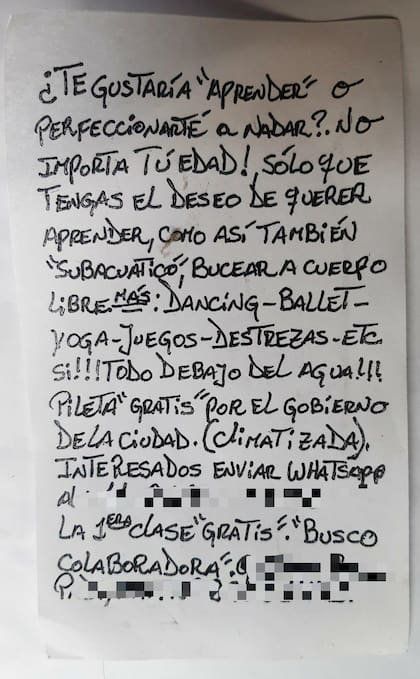 ¿TE GUSTARÍA "APRENDER" O
PERFECCIONARTE a NADAR?. NO
IMPORTA TÚ EDAD!, SÓLO QUE
TENGAS EL DESEO DE QUERER
APRENDER, COMO ASÍ TAMBIÉN
"SUBACUATICO", BUCEAR A CUERPO
LIBRE. MÁS: DANCING-BALLET-
YOGA-JUEGOS-DESTREZAS-ETC.
SI!!! TODO DEBAJO DEL AGUA!!!
PILETA "GRATIS" POR EL GOBIERNO
DE LA CIUDAD. (CLIMATIZADA).
INTERESADOS ENVIAR WHATSAPP
al
LA 1ERA CLASE "GRATIS". "BUSCO
COLABORADORA".